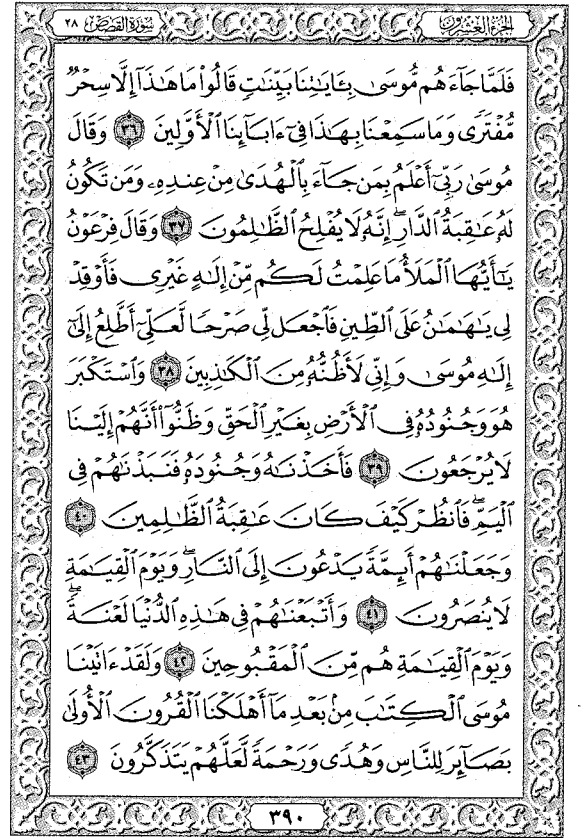 الجزء العشرون سورة القصص ٢٨
فَلَمَّا جَآءَهُم مُّوسَىٰ بِـَٔايَـٰتِنَا بَيِّنَـٰتٍ قَالُوا۟ مَا هَـٰذَآ إِلَّا سِحْرٌ
مُّفْتَرًى وَمَا سَمِعْنَا بِهَـٰذَا فِىٓ ءَابَآئِنَا ٱلْأَوَّلِينَ ٣٦ وَقَالَ
مُوسَىٰ رَبِّىٓ أَعْلَمُ بِمَن جَآءَ بِٱلْهُدَىٰ مِنْ عِندِهِۦ وَمَن تَكُونُ
لَهُۥ عَـٰقِبَةُ ٱلدَّارِ ۖ إِنَّهُۥ لَا يُفْلِحُ ٱلظَّـٰلِمُونَ ٣٧ وَقَالَ فِرْعَوْنُ
يَـٰٓأَيُّهَا ٱلْمَلَأُ مَا عَلِمْتُ لَكُم مِّنْ إِلَـٰهٍ غَيْرِى فَأَوْقِدْ
لِى يَـٰهَـٰمَـٰنُ عَلَى ٱلطِّينِ فَٱجْعَل لِّى صَرْحًا لَّعَلِّىٓ أَطَّلِعُ إِلَىٰٓ
إِلَـٰهِ مُوسَىٰ وَإِنِّى لَأَظُنُّهُۥ مِنَ ٱلْكَـٰذِبِينَ ٣٨ وَٱسْتَكْبَرَ
هُوَ وَجُنُودُهُۥ فِى ٱلْأَرْضِ بِغَيْرِ ٱلْحَقِّ وَظَنُّوٓا۟ أَنَّهُمْ إِلَيْنَا
لَا يُرْجَعُونَ ٣٩ فَأَخَذْنَـٰهُ وَجُنُودَهُۥ فَنَبَذْنَـٰهُمْ فِى
ٱلْيَمِّ ۖ فَٱنظُرْ كَيْفَ كَانَ عَـٰقِبَةُ ٱلظَّـٰلِمِينَ ٤٠
وَجَعَلْنَـٰهُمْ أَئِمَّةً يَدْعُونَ إِلَى ٱلنَّارِ ۖ وَيَوْمَ ٱلْقِيَـٰمَةِ
لَا يُنصَرُونَ ٤١ وَأَتْبَعْنَـٰهُمْ فِى هَـٰذِهِ ٱلدُّنْيَا لَعْنَةً ۖ
وَيَوْمَ ٱلْقِيَـٰمَةِ هُم مِّنَ ٱلْمَقْبُوحِينَ ٤٢ وَلَقَدْ ءَاتَيْنَا
مُوسَى ٱلْكِتَـٰبَ مِنۢ بَعْدِ مَآ أَهْلَكْنَا ٱلْقُرُونَ ٱلْأُولَىٰ
بَصَآئِرَ لِلنَّاسِ وَهُدًى وَرَحْمَةً لَّعَلَّهُمْ يَتَذَكَّرُونَ ٤٣
٣٩٠